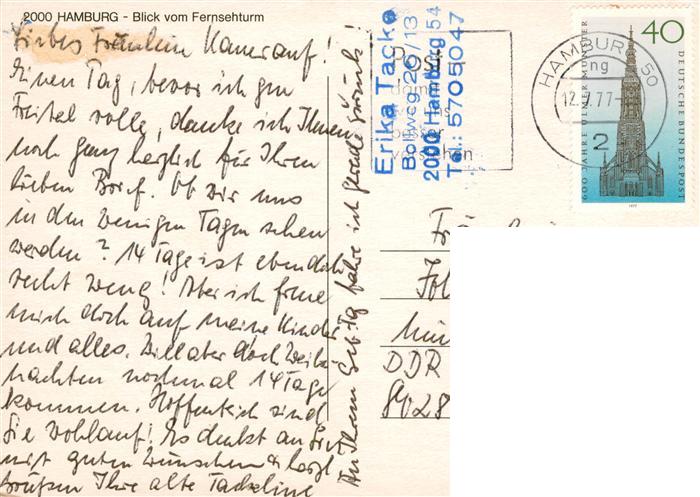 2000 HAMBURG - Blick vom Fernsehturm
Liebes Fräulein Kamerauf!
Einen Tag, bevor ich gen
Freital rolle, danke ich Ihnen
noch ganz herzlich für Ihren
lieben Brief. Ob wir uns
in den wenigen Tagen sehen
werden? 14 Tage ist eben doch
recht wenig! Aber ich freue
mich doch auf meine Kinder
und alles. Will aber doch Weih-
nachten nochmal 14 Tage
kommen. Hoffentlich sind
Sie wohlauf! Es denkt an Sie
mit guten Wünschen & herzl.
Grüßen Ihre alte Tackeline
An Ihrem Geb.tag fahre ich gerade zurück!
Erika Tacke
Bollweg 20/13
2000 Hamburg 54
Tel.: 5705047
HAMBURG 50
ng
12.7.77
2
40
600 JAHRE ULMER MÜNSTER
DEUTSCHE BUNDESPOST
1977
DDR
8028